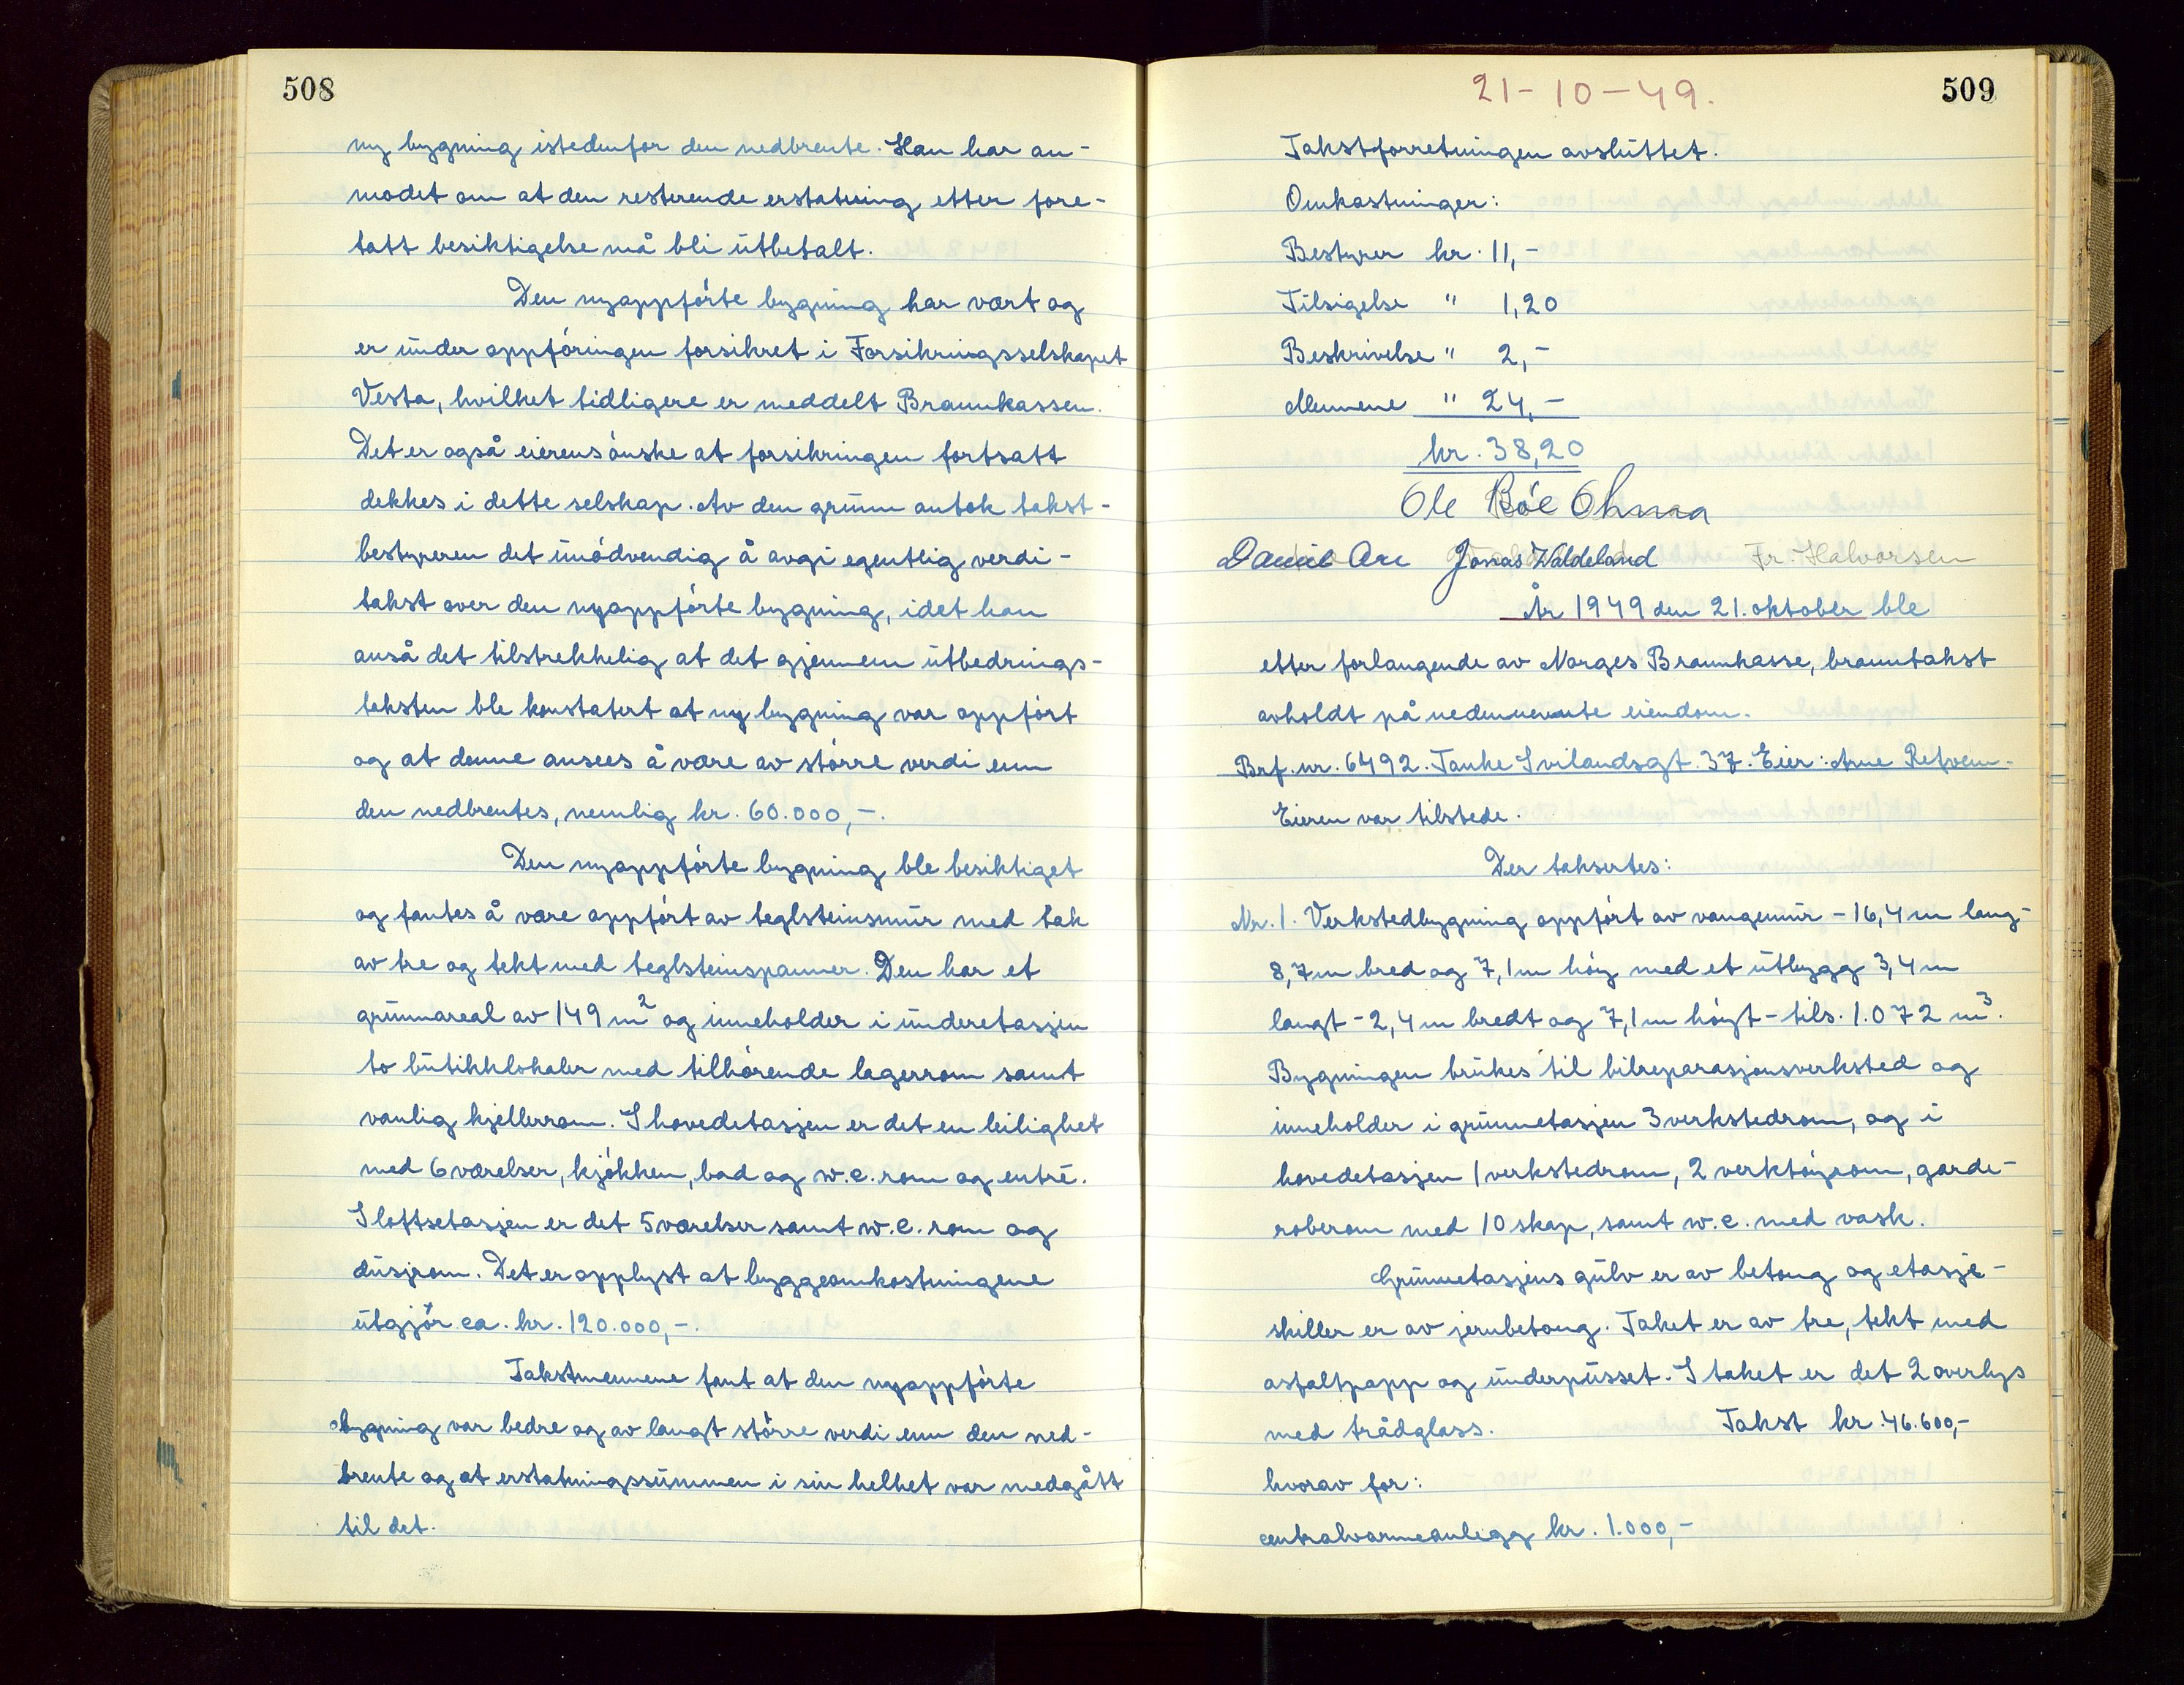 508
ny bygning istedenfor den nedbrente. Han har an-
modet om at den resterende erstatning etter fore-
tatt besiktigelse må bli utbetalt.
Den nyoppførte bygning har vært og
er under oppføringen forsikret i Forsikringsselskapet
Vesta, hvilket tidligere er meddelt Brannkassen.
Det er også eierens ønske at forsikringen fortsatt
dekkes i dette selskap. Av den grunn antok takst-
bestyreren det unødvendig å avgi egentlig verdi-
takst over den nyoppførte bygning, idet han
anså det tilstrekkelig at det gjennem utbedrings-
taksten ble konstatert at ny bygning var oppført
og at denne ansees å være av større verdi enn
den nedbrentes, nemlig kr. 60.000,-.
Den nyoppførte bygning ble besiktiget
og fantes å være oppført av teglsteinsmur med tak
av tre og tekt med teglsteinspanner. Den har et
grunnareal av 149 m² og inneholder i underetasjen
to butikklokaler med tilhørende lagerrom samt
vanlig kjellerrom. I hovedetasjen er det en leilighet
med 6 værelser, kjøkken, bad og w.c. rom og entré.
I loftsetasjen er det 5 værelser samt w.c. rom og
dusjrom. Det er opplyst at byggeomkostningene
utgjør ca. kr. 120.000,-.
Takstmennene fant at den nyoppførte
bygning var bedre og av langt større verdi enn den ned-
brente og at erstatningssummen i sin helhet var medgått
til det.
21-10-49.
509
Takstforretningen avsluttet.
Omkostninger:
Bestyrer kr. 11,-
Tilsigelse " 1,20
Beskrivelse " 2,-
Mennene " 24,-
kr. 38,20
Ole Bøe Ohma
Daniel Are Jonas Waldeland Fr. Halvorsen
År 1949 den 21. oktober ble
etter forlangende av Norges Brannkasse, branntakst
avholdt på nedennevnte eiendom.
Brf. nr. 6492. Tanke Svilandsgt. 37. Eier: Arne Refvem.
Eieren var tilstede.
Der taksertes:
Nr. 1. Verkstedbygning oppført av vangemur - 16,4 m lang-
8,7 m bred og 7,1 m høy med et utbygg 3,4 m
langt - 2,4 m bredt og 7,1 m høyt - tils. 1.072 m³.
Bygningen brukes til bilreparasjonsverksted og
inneholder i grunnetasjen 3 verkstedrom, og i
hovedetasjen 1 verkstedrom, 2 verktøyrom, garde-
roberom med 10 skap, samt w.c. med vask.
Grunnetasjens gulv er av betong og etasje-
skiller er av jernbetong. Taket er av tre, tekt med
asfaltpapp og underpusset. I taket er det 2 overlys
med trådglass. Takst kr. 46.600,-
hvorav for:
centralvarmeanlegg kr. 1.000,-